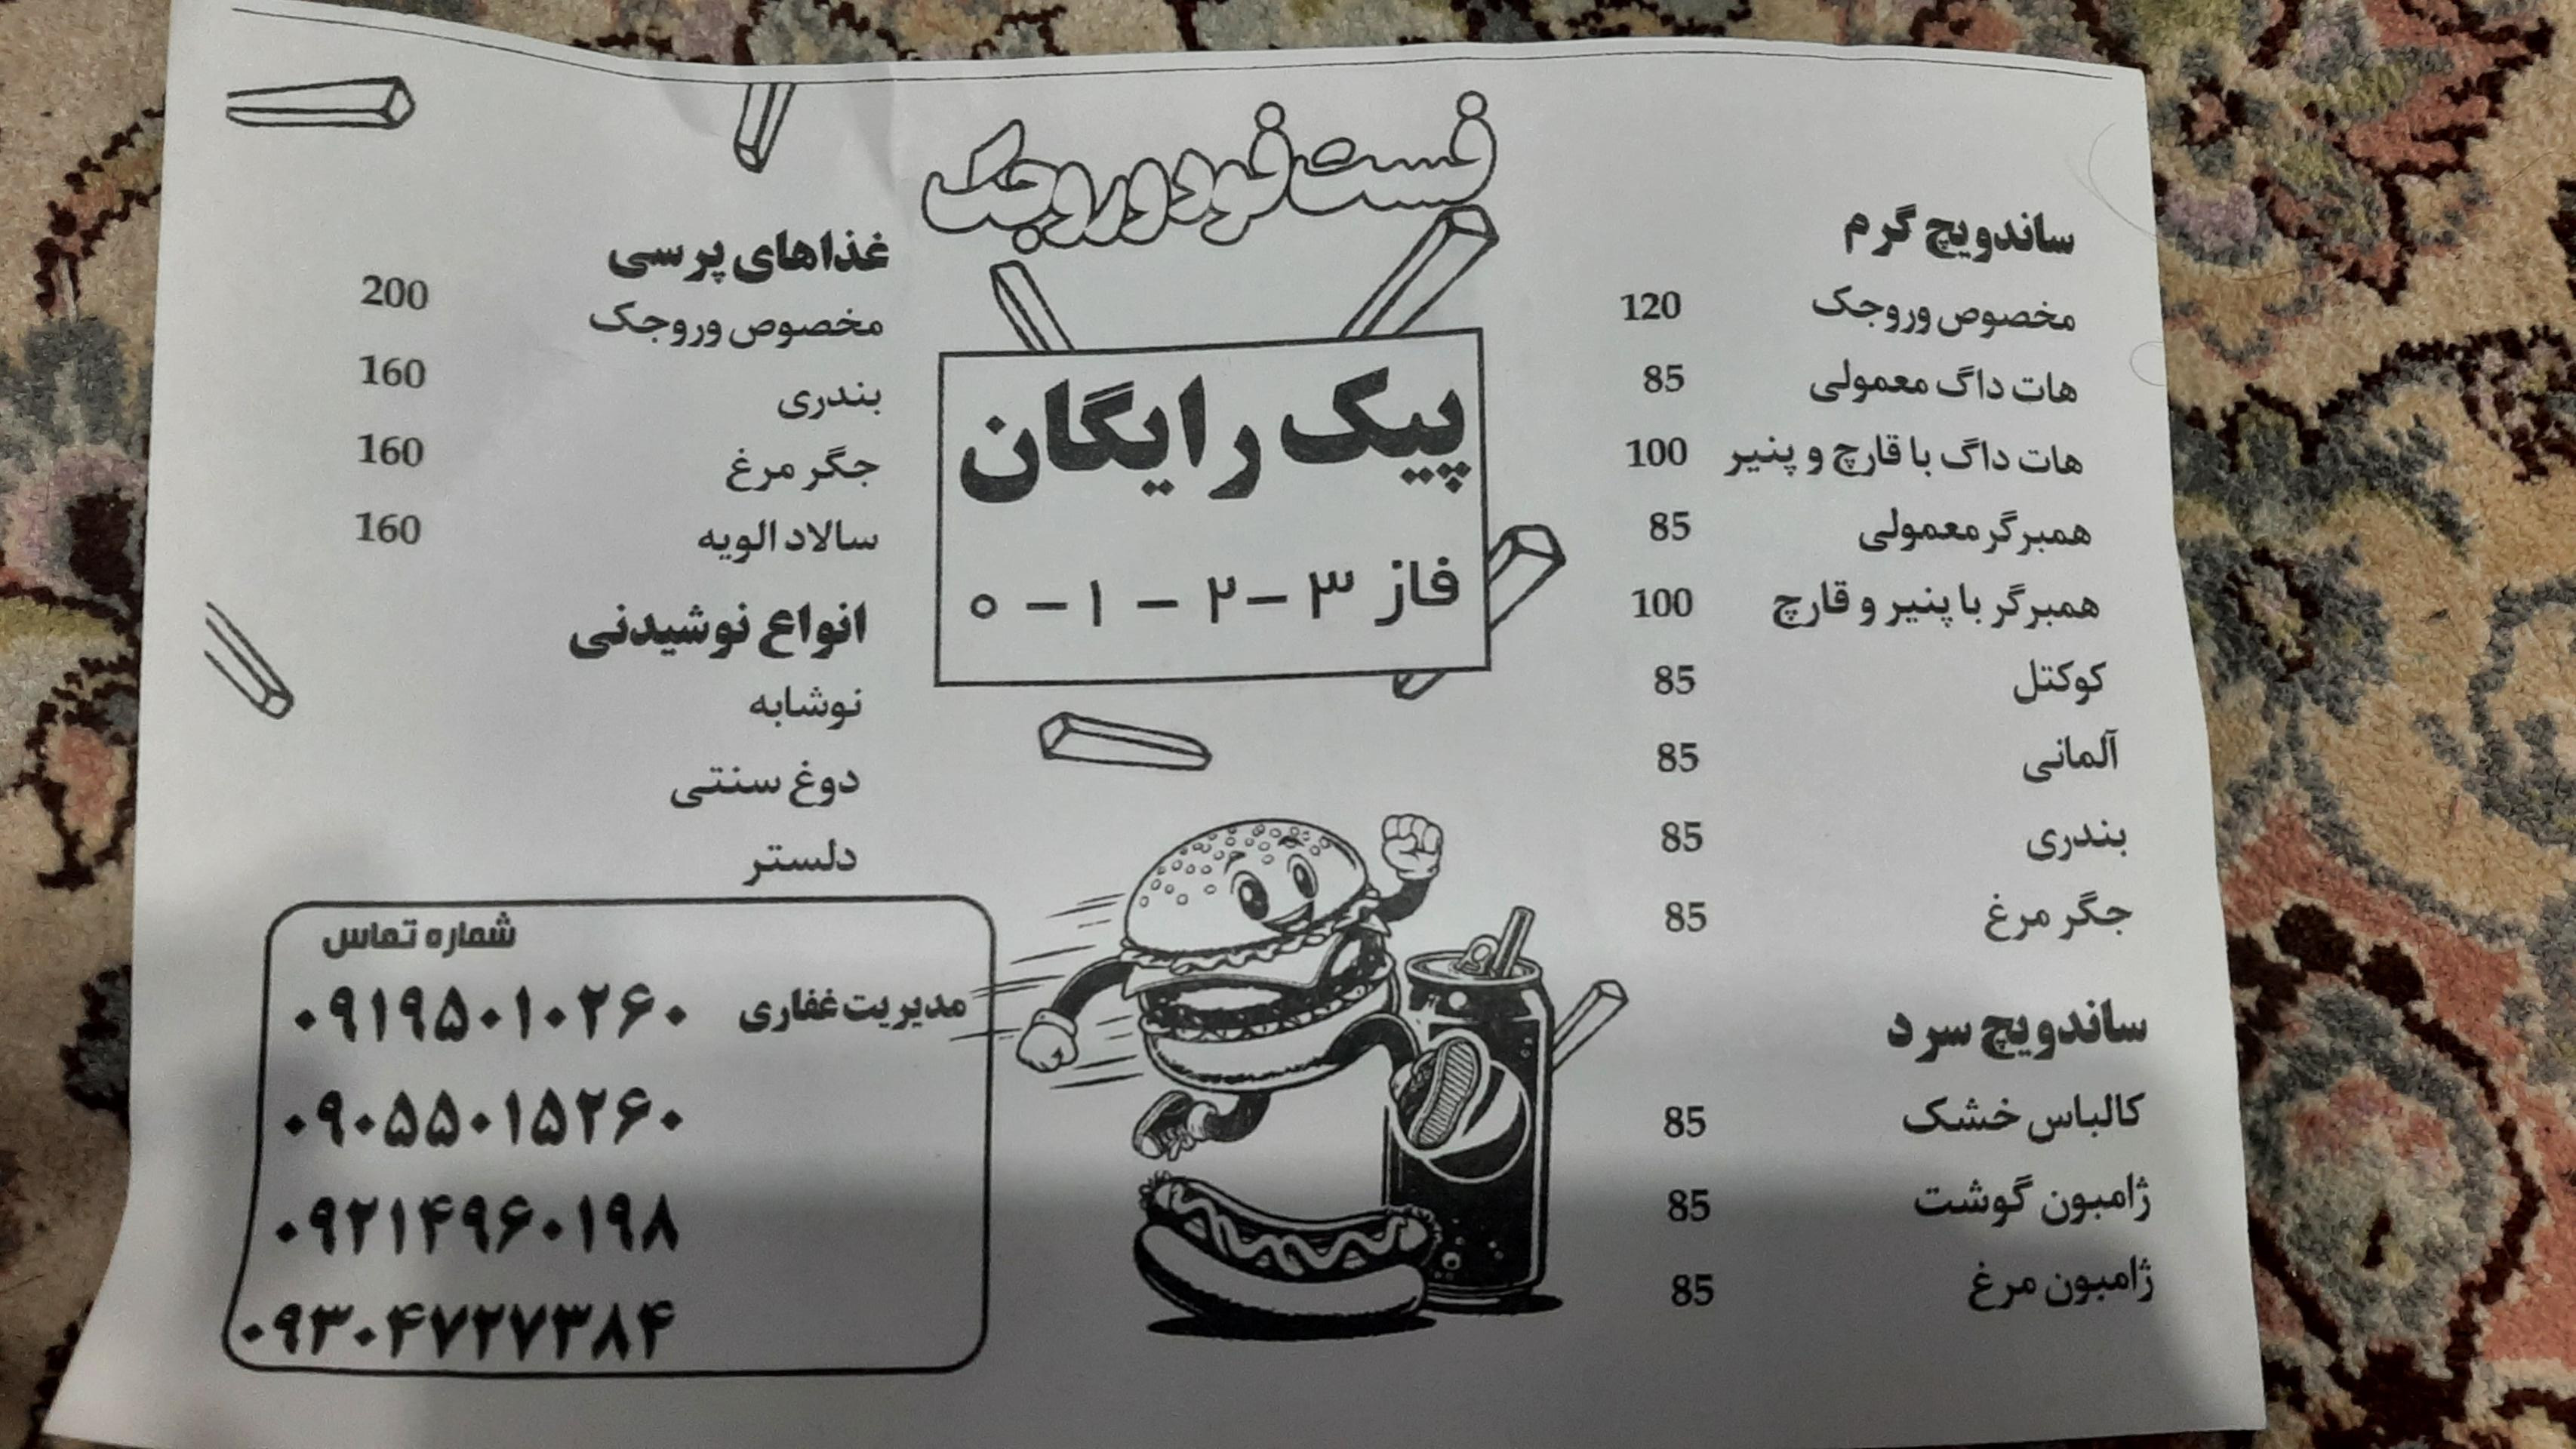 فست فود وروجک
ساندویچ گرم
مخصوص وروجک 120
هات داگ معمولی 85
هات داگ با قارچ و پنیر 100
همبرگر معمولی 85
همبرگر با پنیر و قارچ 100
کوکتل 85
آلمانی 85
بندری 85
جگر مرغ 85
ساندویچ سرد
کالباس خشک 85
ژامبون گوشت 85
ژامبون مرغ 85
پیک رایگان
فاز ۳-۲ - ۱- ۰
غذاهای پرسی
مخصوص وروجک 200
بندری 160
جگر مرغ 160
سالاد الویه 160
انواع نوشیدنی
نوشابه
دوغ سنتی
دلستر
شماره تماس
مدیریت غفاری ۰۹۱۹۵۰۱۰۲۶۰
۰۹۰۵۵۰۱۵۲۶۰
۰۹۲۱۴۹۶۰۱۹۸
۰۹۳۰۴۷۲۷۳۸۴